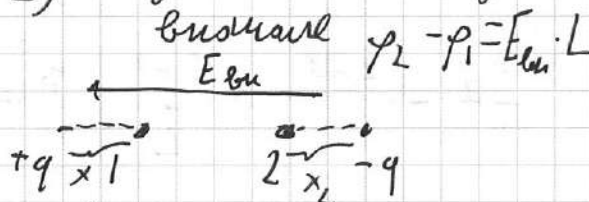 вначале φ₂ - φ₁ = Eвн · L
Eвн
+q x 1 2 x, -q